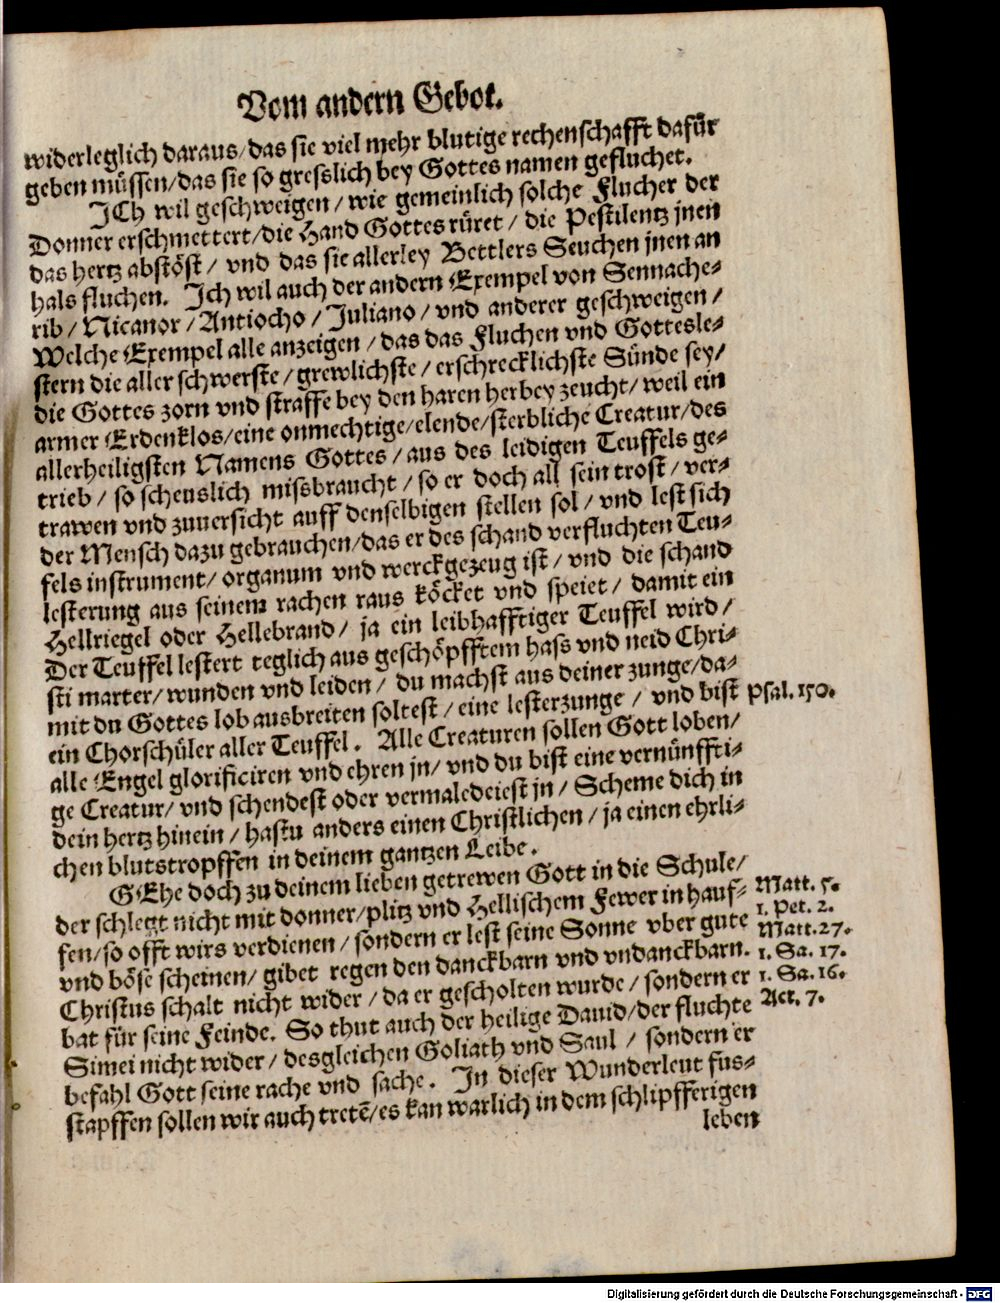 Vom andern Gebot.
widerleglich daraus/das sie viel mehr blutige rechenschafft dafür
geben müssen/das sie so gresslich bey Gottes namen gefluchet.
ICh wil geschweigen/wie gemeinlich solche Flucher der
Donner erschmettert/die Hand Gottes rüret/die Pestilentz jnen
das hertz abstöst/vnd das sie allerley Bettlers Seuchen jnen an
hals fluchen. Ich wil auch der andern Exempel von Sennache-
rib/Nicanor/Antiocho/Juliano/vnd anderer geschweigen/
Welche Exempel alle anzeigen/das das Fluchen vnd Gottesle-
stern die aller schwerste/grewlichste/erschrecklichste Sünde sey/
die Gottes zorn vnd straffe bey den haren herbey zeucht/weil ein
armer Erdenklos/eine onmechtige/elende/sterbliche Creatur/des
allerheiligsten Namens Gottes/aus des leidigen Teuffels ge-
trieb/so scheuslich missbraucht/so er doch all sein trost/ver-
trawen vnd zuuersicht auff denselbigen stellen sol/vnd lest sich
der Mensch dazu gebrauchen/das er des schand verfluchten Teu-
fels instrument/organum vnd werckgezeug ist/vnd die schand
lesterung aus seinem rachen raus köcket vnd speiet/damit ein
Hellriegel oder Hellebrand/ja ein leibhafftiger Teuffel wird/
Der Teuffel lestert teglich aus geschöpfftem hass vnd neid Chri-
sti marter/wunden vnd leiden/du machst aus deiner zunge/da-
mit du Gottes lob ausbreiten soltest/eine lesterzunge/vnd bist
Psal. 150.
ein Chorschüler aller Teuffel. Alle Creaturen sollen Gott loben/
alle Engel glorificiren vnd ehren jn/vnd du bist eine vernünffti-
ge Creatur/vnd schendest oder vermaledeiest jn/Scheme dich in
dein hertz hinein/hastu anders einen Christlichen/ja einen ehrli-
chen blutstropffen in deinem gantzen Leibe.
GEhe doch zu deinem lieben getrewen Gott in die Schule/
der schlegt nicht mit donner/plitz vnd Hellischem Fewer in hauf-
Matt. 5.
fen/so offt wirs verdienen/sondern er lest seine Sonne vber gute
1. Pet. 2.
vnd böse scheinen/gibet regen den danckbarn vnd vndanckbarn.
Matt. 27.
Christus schalt nicht wider/da er gescholten wurde/sondern er
1. Sa. 17.
bat für seine Feinde. So thut auch der heilige Dauid/der fluchte
1. Sa. 16.
Simei nicht wider/desgleichen Goliath vnd Saul/sondern er
Act. 7.
befahl Gott seine rache vnd sache. In dieser Wunderleut fus-
stapffen sollen wir auch tretē/es kan warlich in dem schlipfferigen
leben
Digitalisierung gefördert durch die Deutsche Forschungsgemeinschaft - DFG